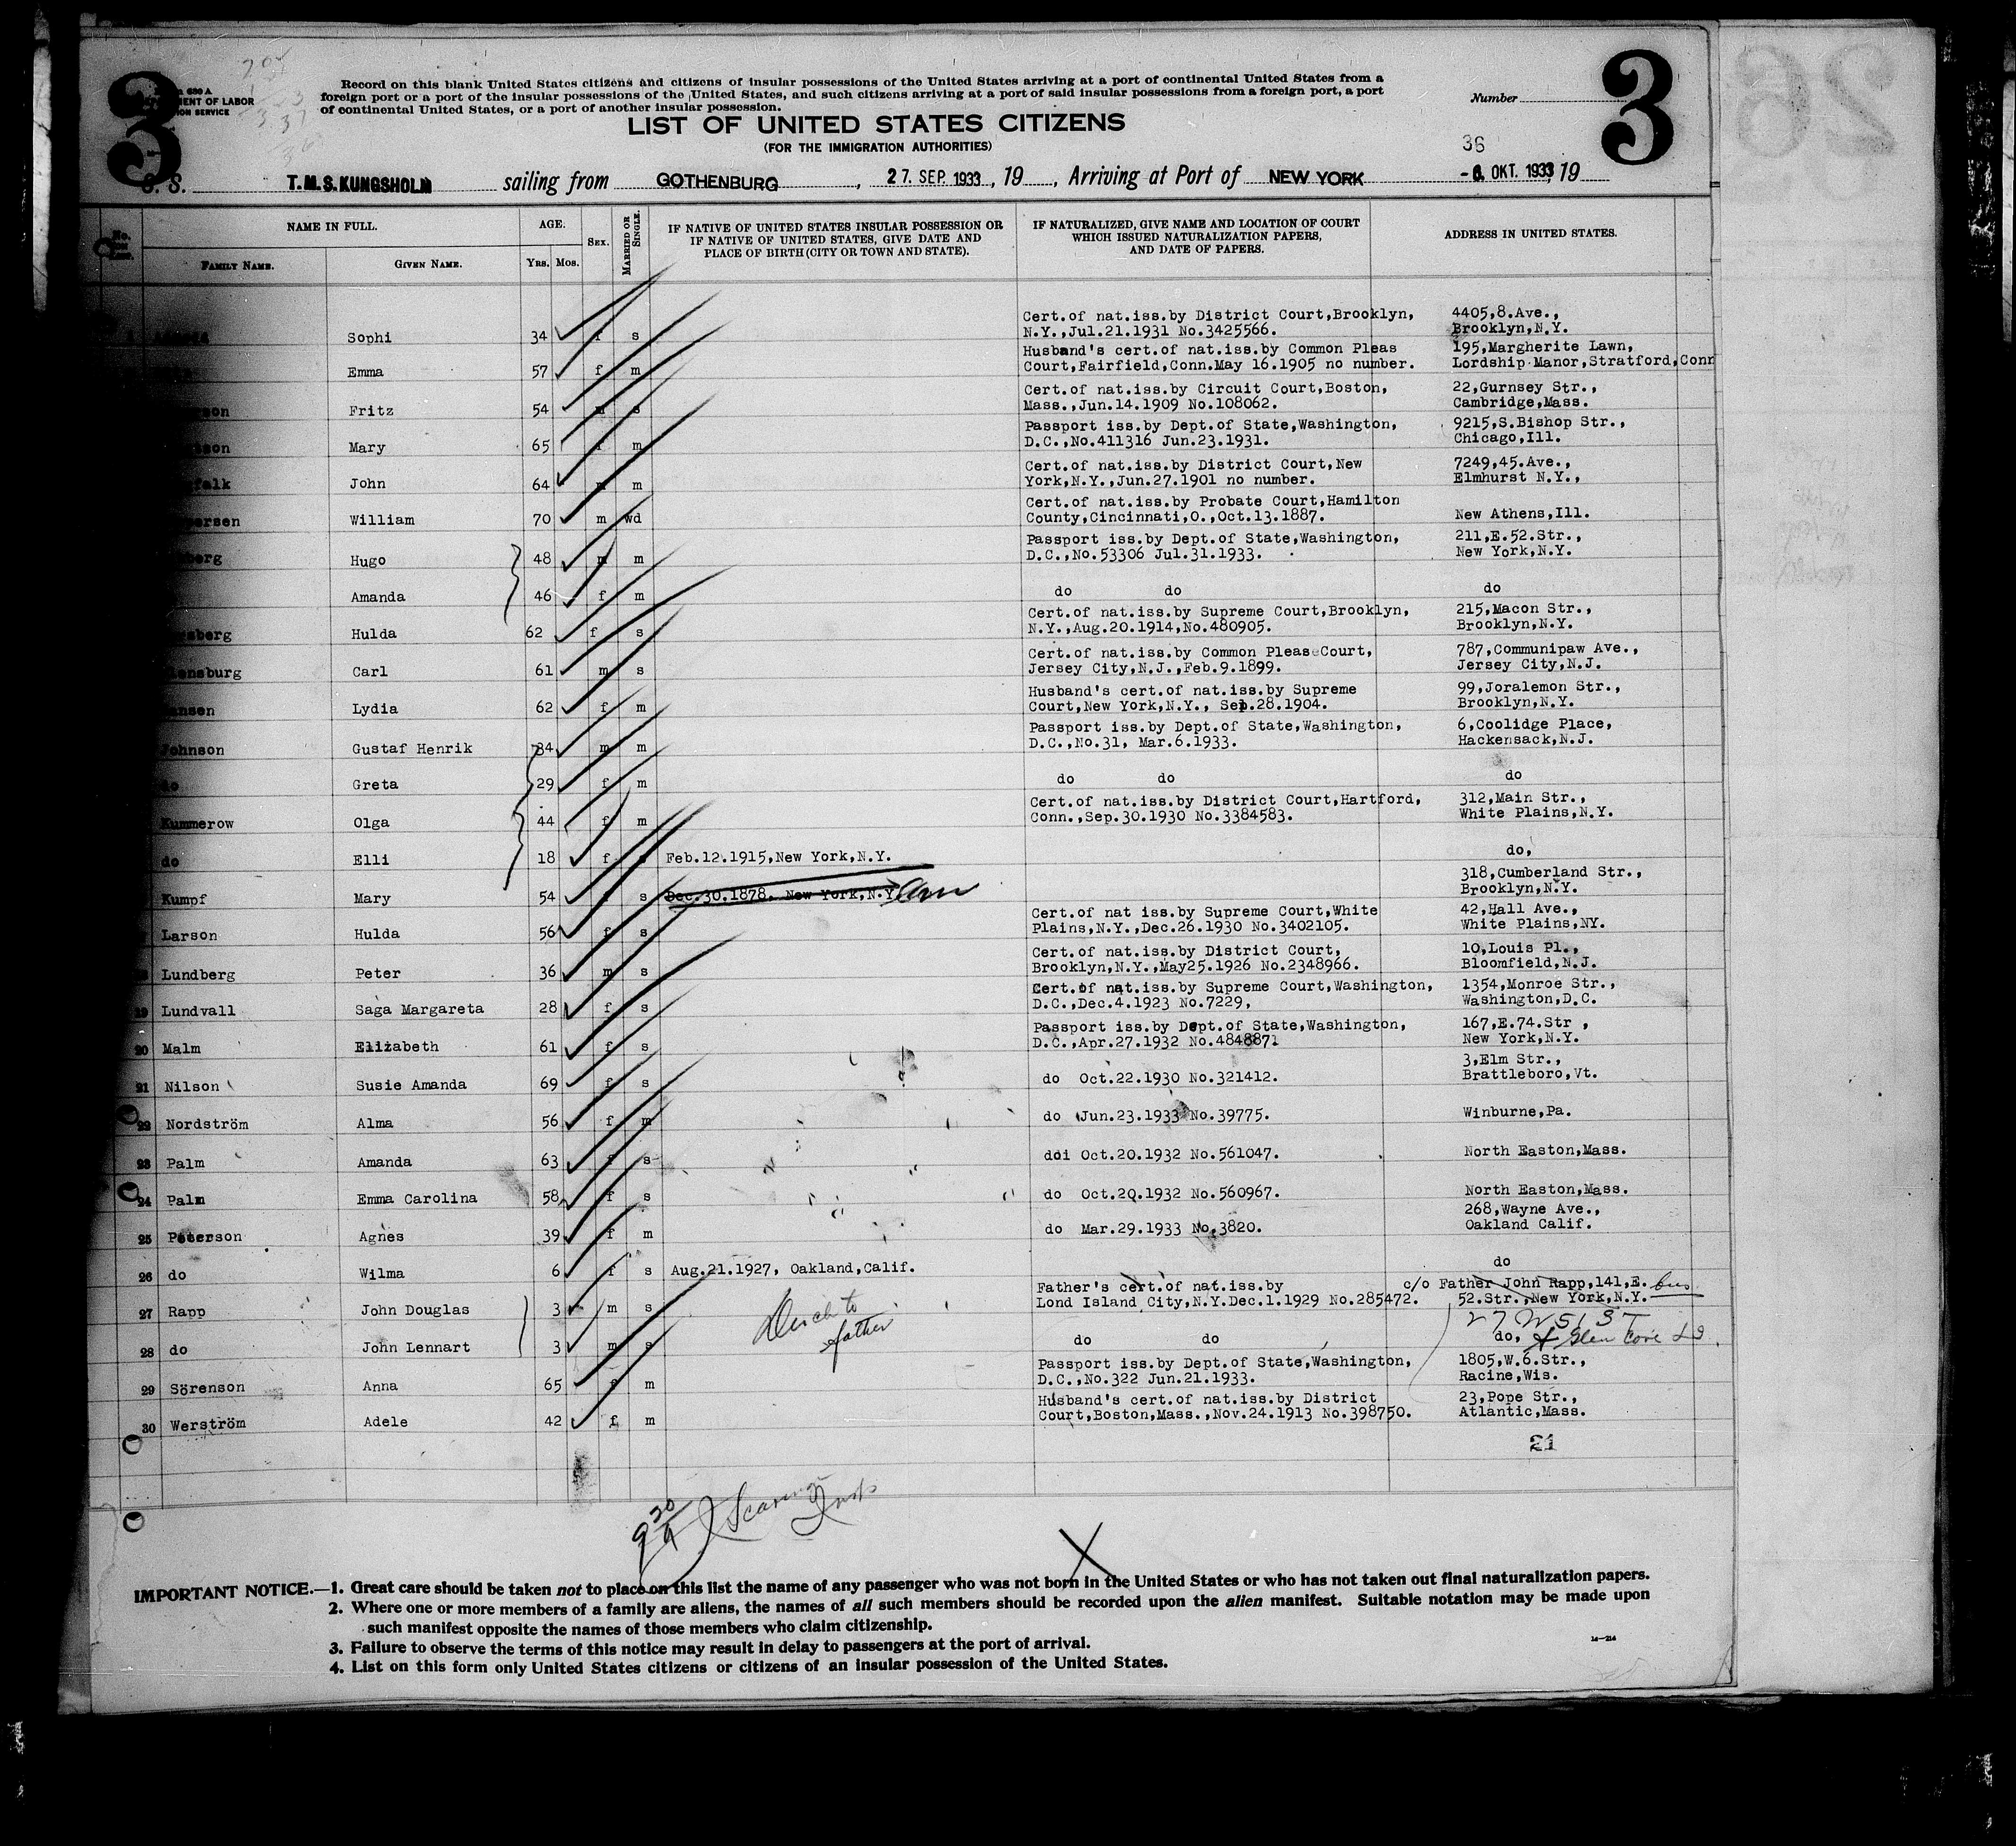 3
3
Record on this blank United States citizens and citizens of insular possessions of the United States arriving at a port of continental United States from a
foreign port or a port of the insular possessions of the United States, and such citizens arriving at a port of said insular possessions from a foreign port, a port
of continental United States, or a port of another insular possession.
LIST OF UNITED STATES CITIZENS
(FOR THE IMMIGRATION AUTHORITIES)
Number
36
S. S. T.M.S.KUNGSHOLM sailing from GOTHENBURG, 27. SEP. 1933, 19 , Arriving at Port of NEW YORK -6. OKT. 1933 19
NAME IN FULL. AGE. SEX. MARRIED OR SINGLE. IF NATIVE OF UNITED STATES INSULAR POSSESSION OR IF NATIVE OF UNITED STATES, GIVE DATE AND PLACE OF BIRTH (CITY OR TOWN AND STATE). IF NATURALIZED, GIVE NAME AND LOCATION OF COURT WHICH ISSUED NATURALIZATION PAPERS, AND DATE OF PAPERS. ADDRESS IN UNITED STATES.
FAMILY NAME. GIVEN NAME. YRS. MOS.
Cert.of nat.iss.by District Court,Brooklyn, 4405,8.Ave.,
Sophi 34 f s N.Y.,Jul.21.1931 No.3425566. Brooklyn,N.Y.
Husband's cert.of nat.iss.by Common Pleas 195,Margherite Lawn,
Emma 57 f m Court,Fairfield,Conn.May 16.1905 no number. Lordship Manor,Stratford,Conn
Cert.of nat.iss.by Circuit Court,Boston, 22,Gurnsey Str.,
Fritz 54 m s Mass.,Jun.14.1909 No.108062. Cambridge,Mass.
Passport iss.by Dept.of State,Washington, 9215,S.Bishop Str.,
Mary 65 f m D.C.,No.411316 Jun.23.1931. Chicago,Ill.
Cert.of nat.iss.by District Court,New 7249,45.Ave.,
John 64 m m York,N.Y.,Jun.27.1901 no number. Elmhurst N.Y.,
Cert.of nat.iss.by Probate Court,Hamilton
William 70 m wd County,Cincinnati,O.,Oct.13.1887. New Athens,Ill.
Passport iss.by Dept.of State,Washington, 211,E.52.Str.,
Hugo 48 m m D.C.,No.53306 Jul.31.1933. New York,N.Y.
Amanda 46 f m do do do
Cert.of nat.iss.by Supreme Court,Brooklyn, 215,Macon Str.,
Hulda 62 f s N.Y.,Aug.20.1914,No.480905. Brooklyn,N.Y.
Cert.of nat.iss.by Common Pleas Court, 787,Communipaw Ave.,
Carl 61 m s Jersey City,N.J.,Feb.9.1899. Jersey City,N.J.
Husband's cert.of nat.iss.by Supreme 99,Joralemon Str.,
Lydia 62 f m Court,New York,N.Y., Sep.28.1904. Brooklyn,N.Y.
Passport iss.by Dept.of State,Washington, 6,Coolidge Place,
Johnson Gustaf Henrik 34 m m D.C.,No.31, Mar.6.1933. Hackensack,N.J.
do Greta 29 f m do do do
Cert.of nat.iss.by District Court,Hartford, 312,Main Str.,
Kummerow Olga 44 f m Conn.,Sep.30.1930 No.3384583. White Plains,N.Y.
do Elli 18 f s Feb.12.1915,New York,N.Y. do,
318,Cumberland Str.,
Kumpf Mary 54 f s Dec.30.1878, New York,N.Y. Brooklyn,N.Y.
Cert.of nat iss.by Supreme Court,White 42,Hall Ave.,
Larson Hulda 56 f s Plains,N.Y.,Dec.26.1930 No.3402105. White Plains,NY.
Cert.of nat.iss.by District Court, 10,Louis Pl.,
Lundberg Peter 36 m s Brooklyn,N.Y.,May25.1926 No.2348966. Bloomfield,N.J.
Cert.of nat.iss.by Supreme Court,Washington, 1354,Monroe Str.,
19 Lundvall Saga Margareta 28 f s D.C.,Dec.4.1923 No.7229, Washington,D.C.
Passport iss.by Dept.of State,Washington, 167,E.74.Str ,
20 Malm Elizabeth 61 f s D.C.,Apr.27.1932 No.4848871 New York,N.Y.
3,Elm Str.,
21 Nilson Susie Amanda 69 f s do Oct.22.1930 No.321412. Brattleboro,Vt.
22 Nordström Alma 56 f m do Jun.23.1933 No.39775. Winburne,Pa.
23 Palm Amanda 63 f s doi Oct.20.1932 No.561047. North Easton,Mass.
24 Palm Emma Carolina 58 f s do Oct.20.1932 No.560967. North Easton,Mass.
268,Wayne Ave.,
25 Peterson Agnes 39 f m do Mar.29.1933 No.3820. Oakland Calif.
26 do Wilma 6 f s Aug.21.1927, Oakland,Calif. do
Father's cert.of nat.iss.by c/o Father John Rapp,141,E.
27 Rapp John Douglas 3 m s Lond Island City,N.Y.Dec.1.1929 No.285472. 52.Str.,New York,N.Y.
Disch to father
27 W 51 ST
28 do John Lennart 3 m s do do do, Glen Cove L I.
Passport iss.by Dept.of State,Washington, 1805,W.6.Str.,
29 Sörenson Anna 65 f m D.C.,No.322 Jun.21.1933. Racine,Wis.
Husband's cert.of nat.iss.by District 23,Pope Str.,
30 Werström Adele 42 f m Court,Boston,Mass.,Nov.24.1913 No.398750. Atlantic,Mass.
21
IMPORTANT NOTICE.—1. Great care should be taken not to place on this list the name of any passenger who was not born in the United States or who has not taken out final naturalization papers.
2. Where one or more members of a family are aliens, the names of all such members should be recorded upon the alien manifest. Suitable notation may be made upon
such manifest opposite the names of those members who claim citizenship.
3. Failure to observe the terms of this notice may result in delay to passengers at the port of arrival.
4. List on this form only United States citizens or citizens of an insular possession of the United States.